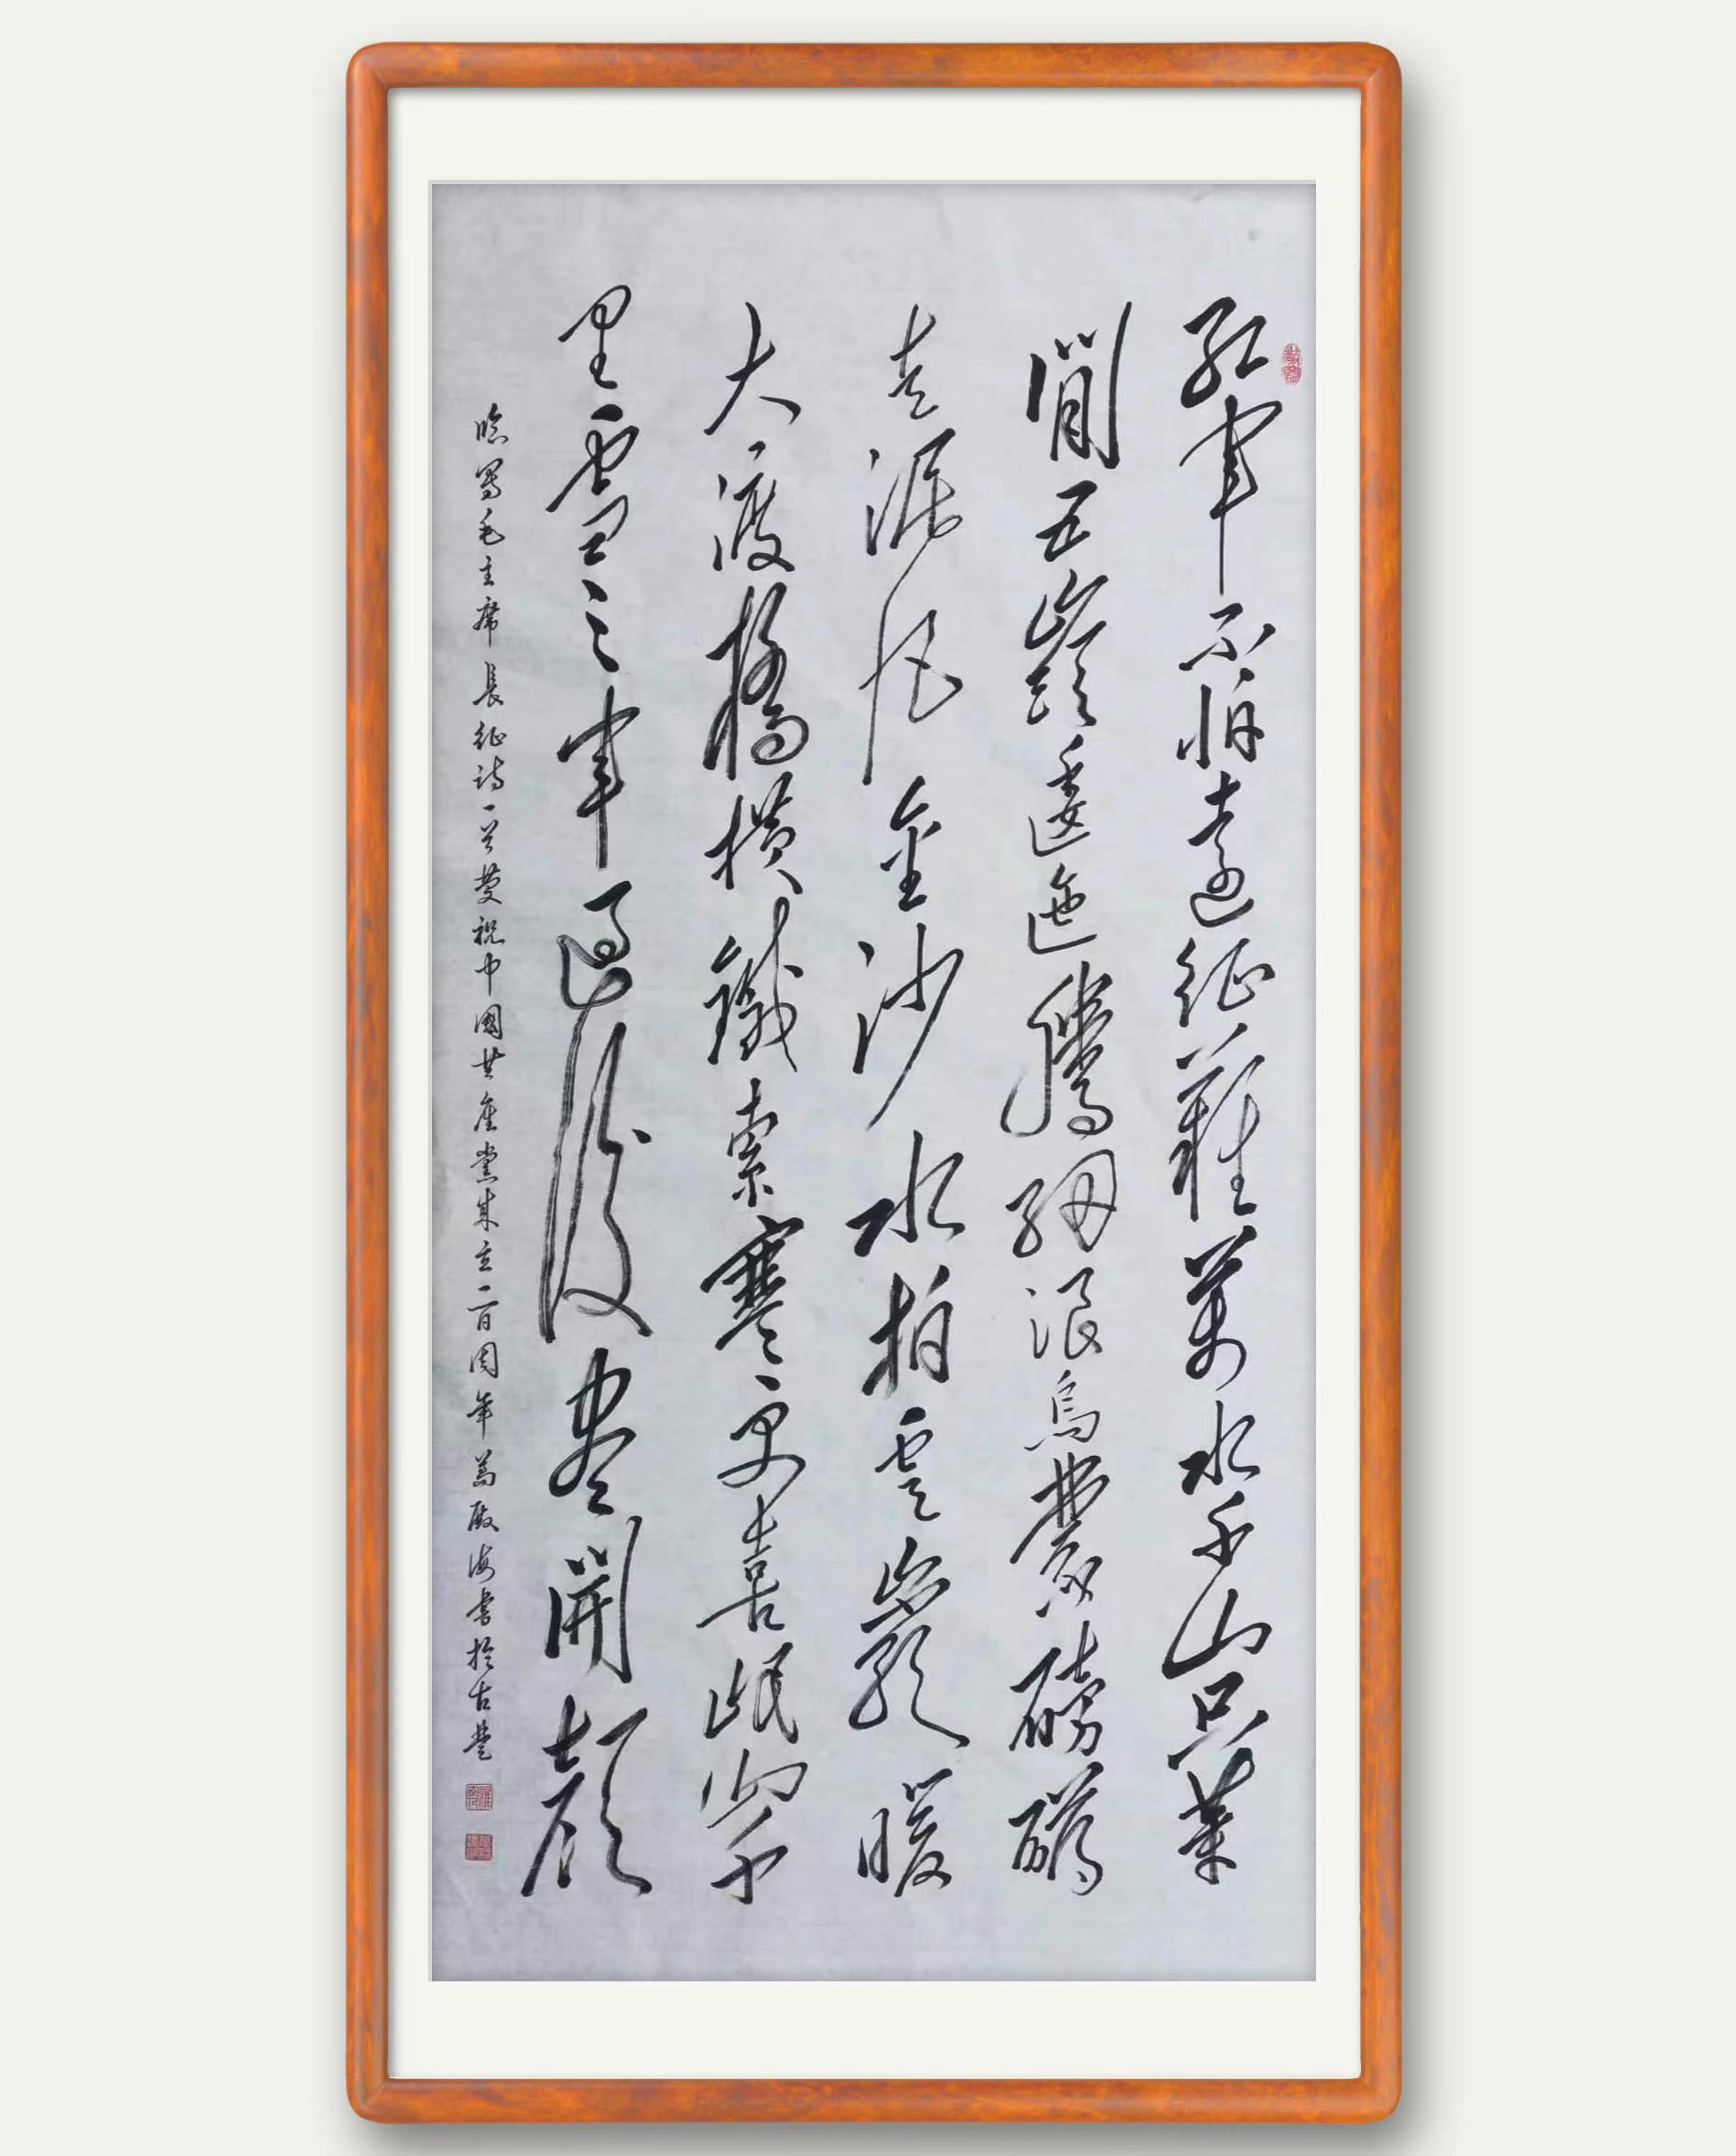 紅軍不怕遠征難萬水千山只等
閒五嶺逶迤騰細浪烏蒙磅礴
走泥丸金沙水拍雲巖暖
大渡橋橫鐵索寒更喜岷山千
里雪三軍過後盡開顏
臨寫毛主席長征詩一首慶祝中國共產黨成立一百周年殿海書於古楚